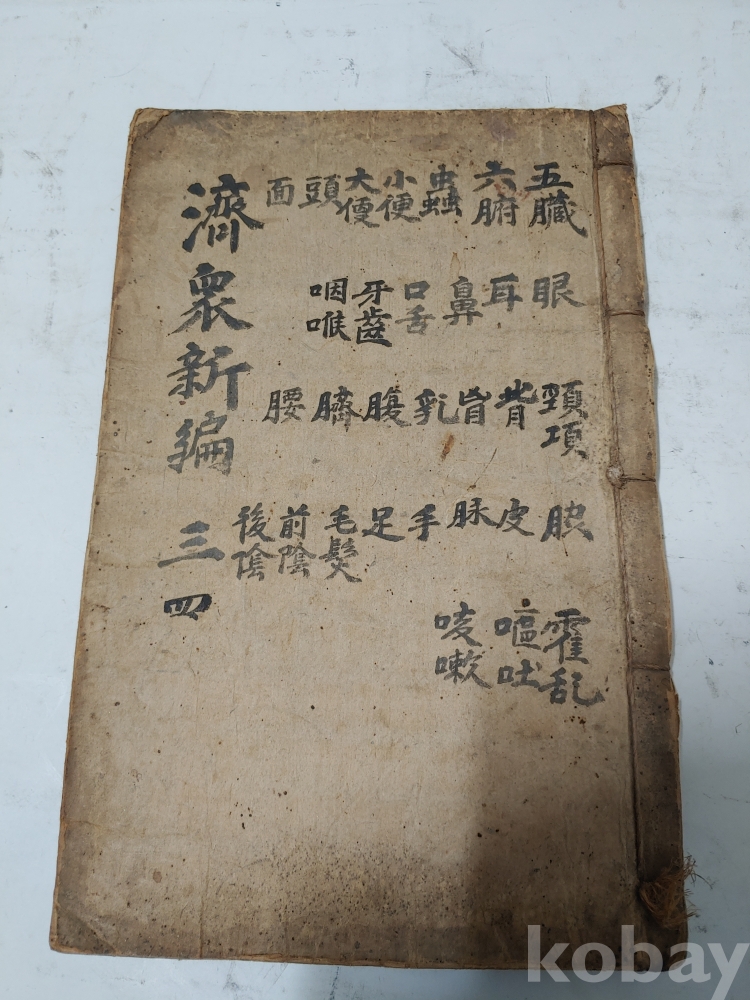 濟衆新編 三四
五臟 六腑 蟲 小便 大便 頭 面
眼 耳 鼻 口舌 牙齒 咽喉
頸項 背 胷 乳 腹 臍 腰
皮 脉 手 足 毛髮 前陰 後陰
霍乱 嘔吐 咳嗽
kobay